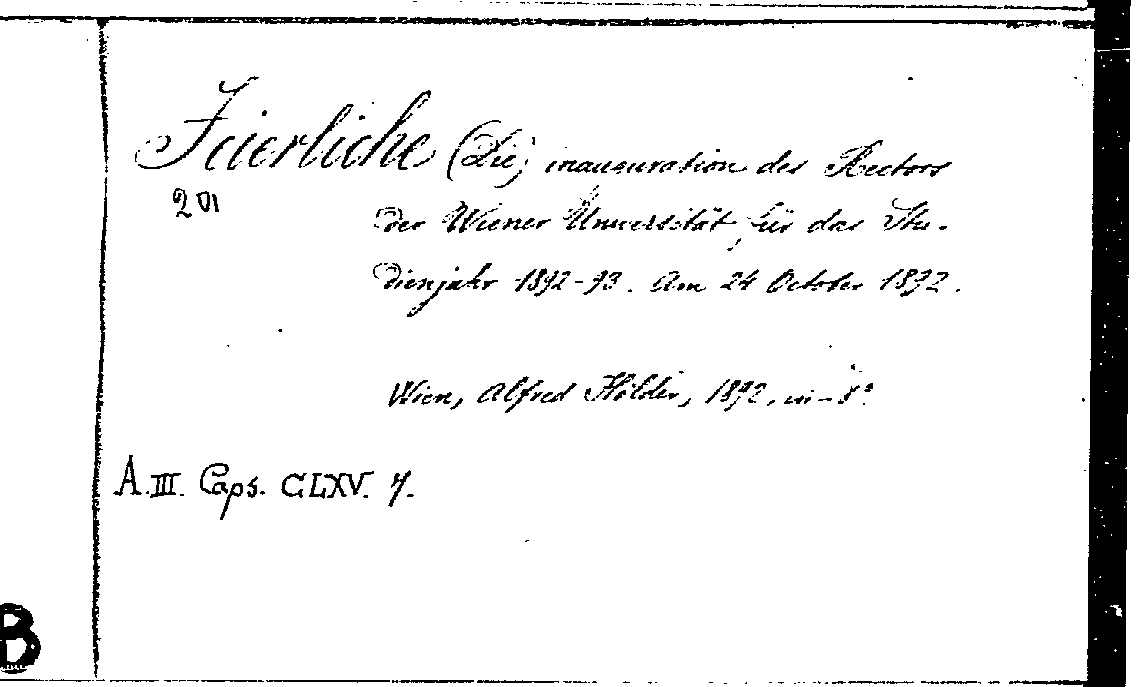 Feierliche (Die) inauguration des Rectors
201
der Wiener Universität für das Stu-
dienjahr 1892-93. Am 24 October 1892.
Wien, Alfred Hölder, 1892, in-8°
A.III. Caps. CLXV. 7.
B